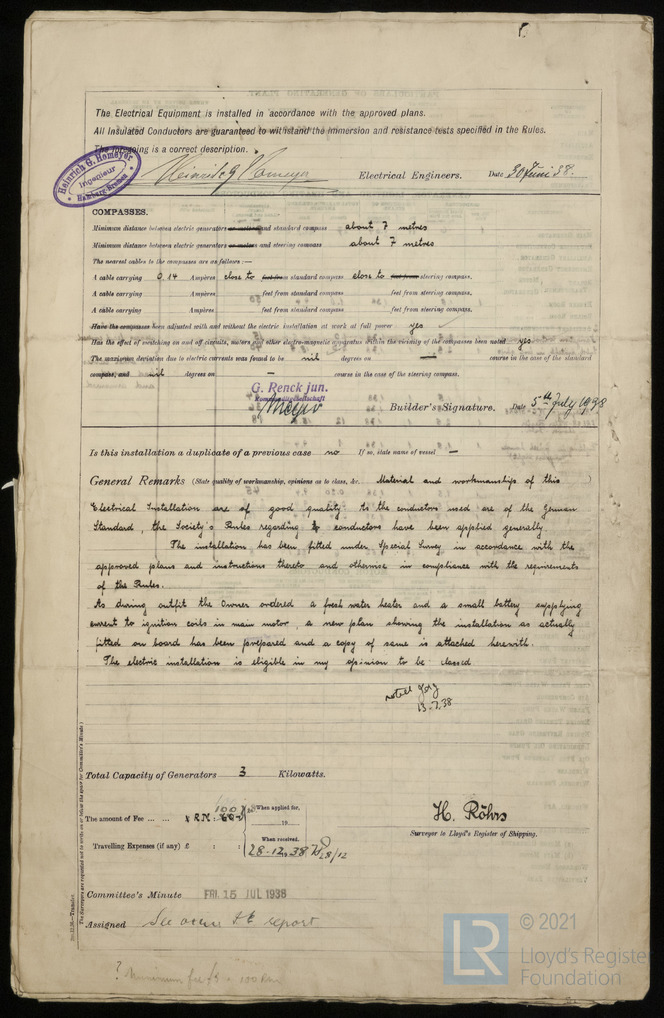 The Electrical Equipment is installed in accordance with the approved plans.
All Insulated Conductors are guaranteed to withstand the immersion and resistance tests specified in the Rules.
The foregoing is a correct description.
Heinrich G. Homeyer
Ingenieur
Hamburg-Bremen
Heinrich G Homeyer Electrical Engineers. Date 30 Juni 38.
COMPASSES.
Minimum distance between electric generators or motors and standard compass about 7 metres
Minimum distance between electric generators or motors and steering compass about 7 metres
The nearest cables to the compasses are as follows:—
A cable carrying 0.14 Ampères close to feet from standard compass close to feet from steering compass.
A cable carrying Ampères feet from standard compass feet from steering compass.
A cable carrying Ampères feet from standard compass feet from steering compass.
Have the compasses been adjusted with and without the electric installation at work at full power yes
Has the effect of switching on and off circuits, motors and other electro-magnetic apparatus within the vicinity of the compasses been noted yes
The maximum deviation due to electric currents was found to be nil degrees on — course in the case of the standard
compass, and nil degrees on — course in the case of the steering compass.
G. Renck jun.
Kommanditgesellschaft
Meyer Builder's Signature. Date 5th July 1938
Is this installation a duplicate of a previous case no If so, state name of vessel —
General Remarks (State quality of workmanship, opinions as to class, &c. Material and workmanship of this)
Electrical Installation are of good quality. As the conductors used are of the German
Standard, the Society's Rules regarding conductors have been applied generally.
The installation has been fitted under Special Survey in accordance with the
approved plans and instructions thereto and otherwise in compliance with the requirements
of the Rules.
As during outfit the Owner ordered a fresh water heater and a small battery supplying
current to ignition coils in main motor, a new plan showing the installation as actually
fitted on board has been prepared and a copy of same is attached herewith.
The electric installation is eligible in my opinion to be classed
noted
13.7.38
Total Capacity of Generators 3 Kilowatts.
The amount of Fee ... ... £ R.M. 60.- 100
When applied for,
19
Travelling Expenses (if any) £ : :
When received.
28.12.38 28/12
H. Röhrs
Surveyor to Lloyd's Register of Shipping.
Committee's Minute FRI. 15 JUL 1938
Assigned See report
2m.11.36.—Transfer.
(The Surveyors are requested not to write on or below the space for Committee's Minute.)
? Minimum fee £5 = 100 R.M.
LR
© 2021
Lloyd's Register
Foundation